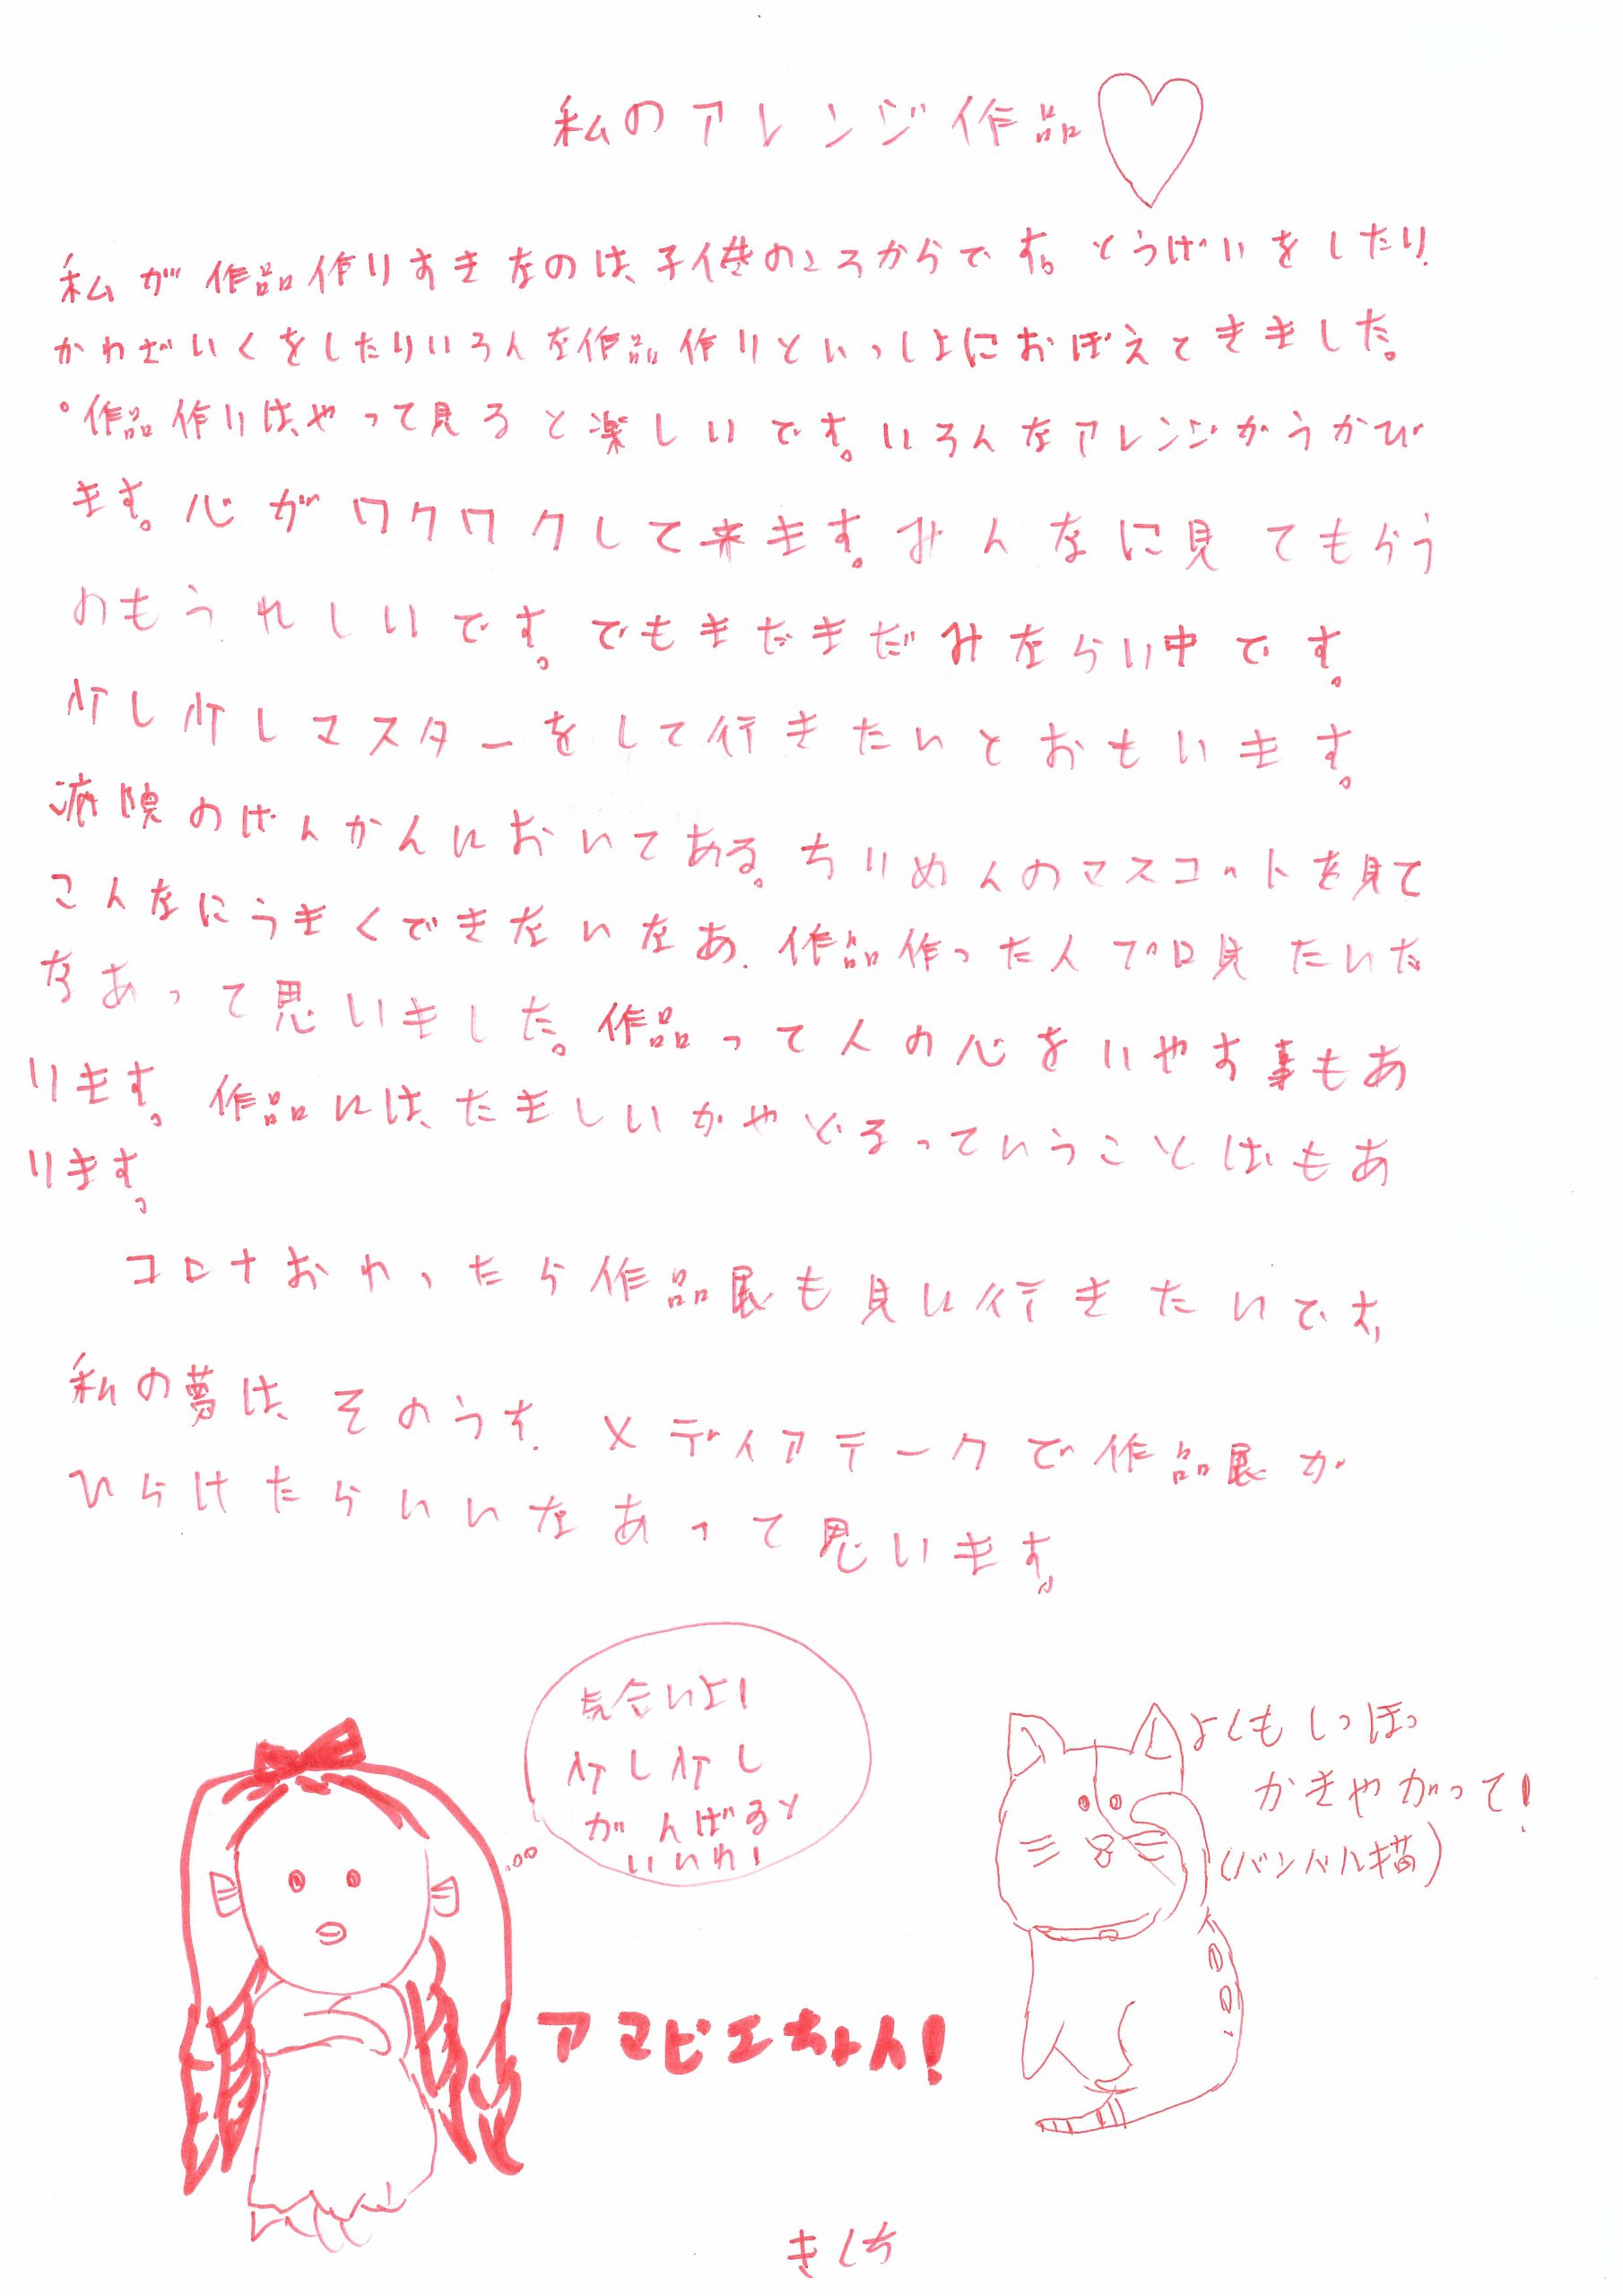 私のアレンジ作品
私が作品作りすきなのは、子供のころからです。とうげいをしたり
かわざいくをしたりいろんな作品作りといっしょにおぼえてきました。
作品作りは、やって見ると楽しいです。いろんなアレンジがうかび
ます。心がワクワクして来ます。みんなに見てもらう
のもうれしいです。でもまだまだみならい中です。
少し少しマスターをして行きたいとおもいます。
病院のげんかんにおいてある。ちりめんのマスコットを見て
こんなにうまくできないなあ、作品作った人プロ見たいだ
なあって思いました。作品って人の心をいやす事もあ
ります。作品には、たましいがやどるっていうことばもあ
ります。
コロナおわったら作品展も見に行きたいです。
私の夢は、そのうち、メディアテークで作品展が
ひらけたらいいなあって思います。
気合いよ!
少し少し
がんばると
いいわ!
アマビエちゃん!
よくもしっぽっ
かきやがって!
(バンバル猫)
きくち